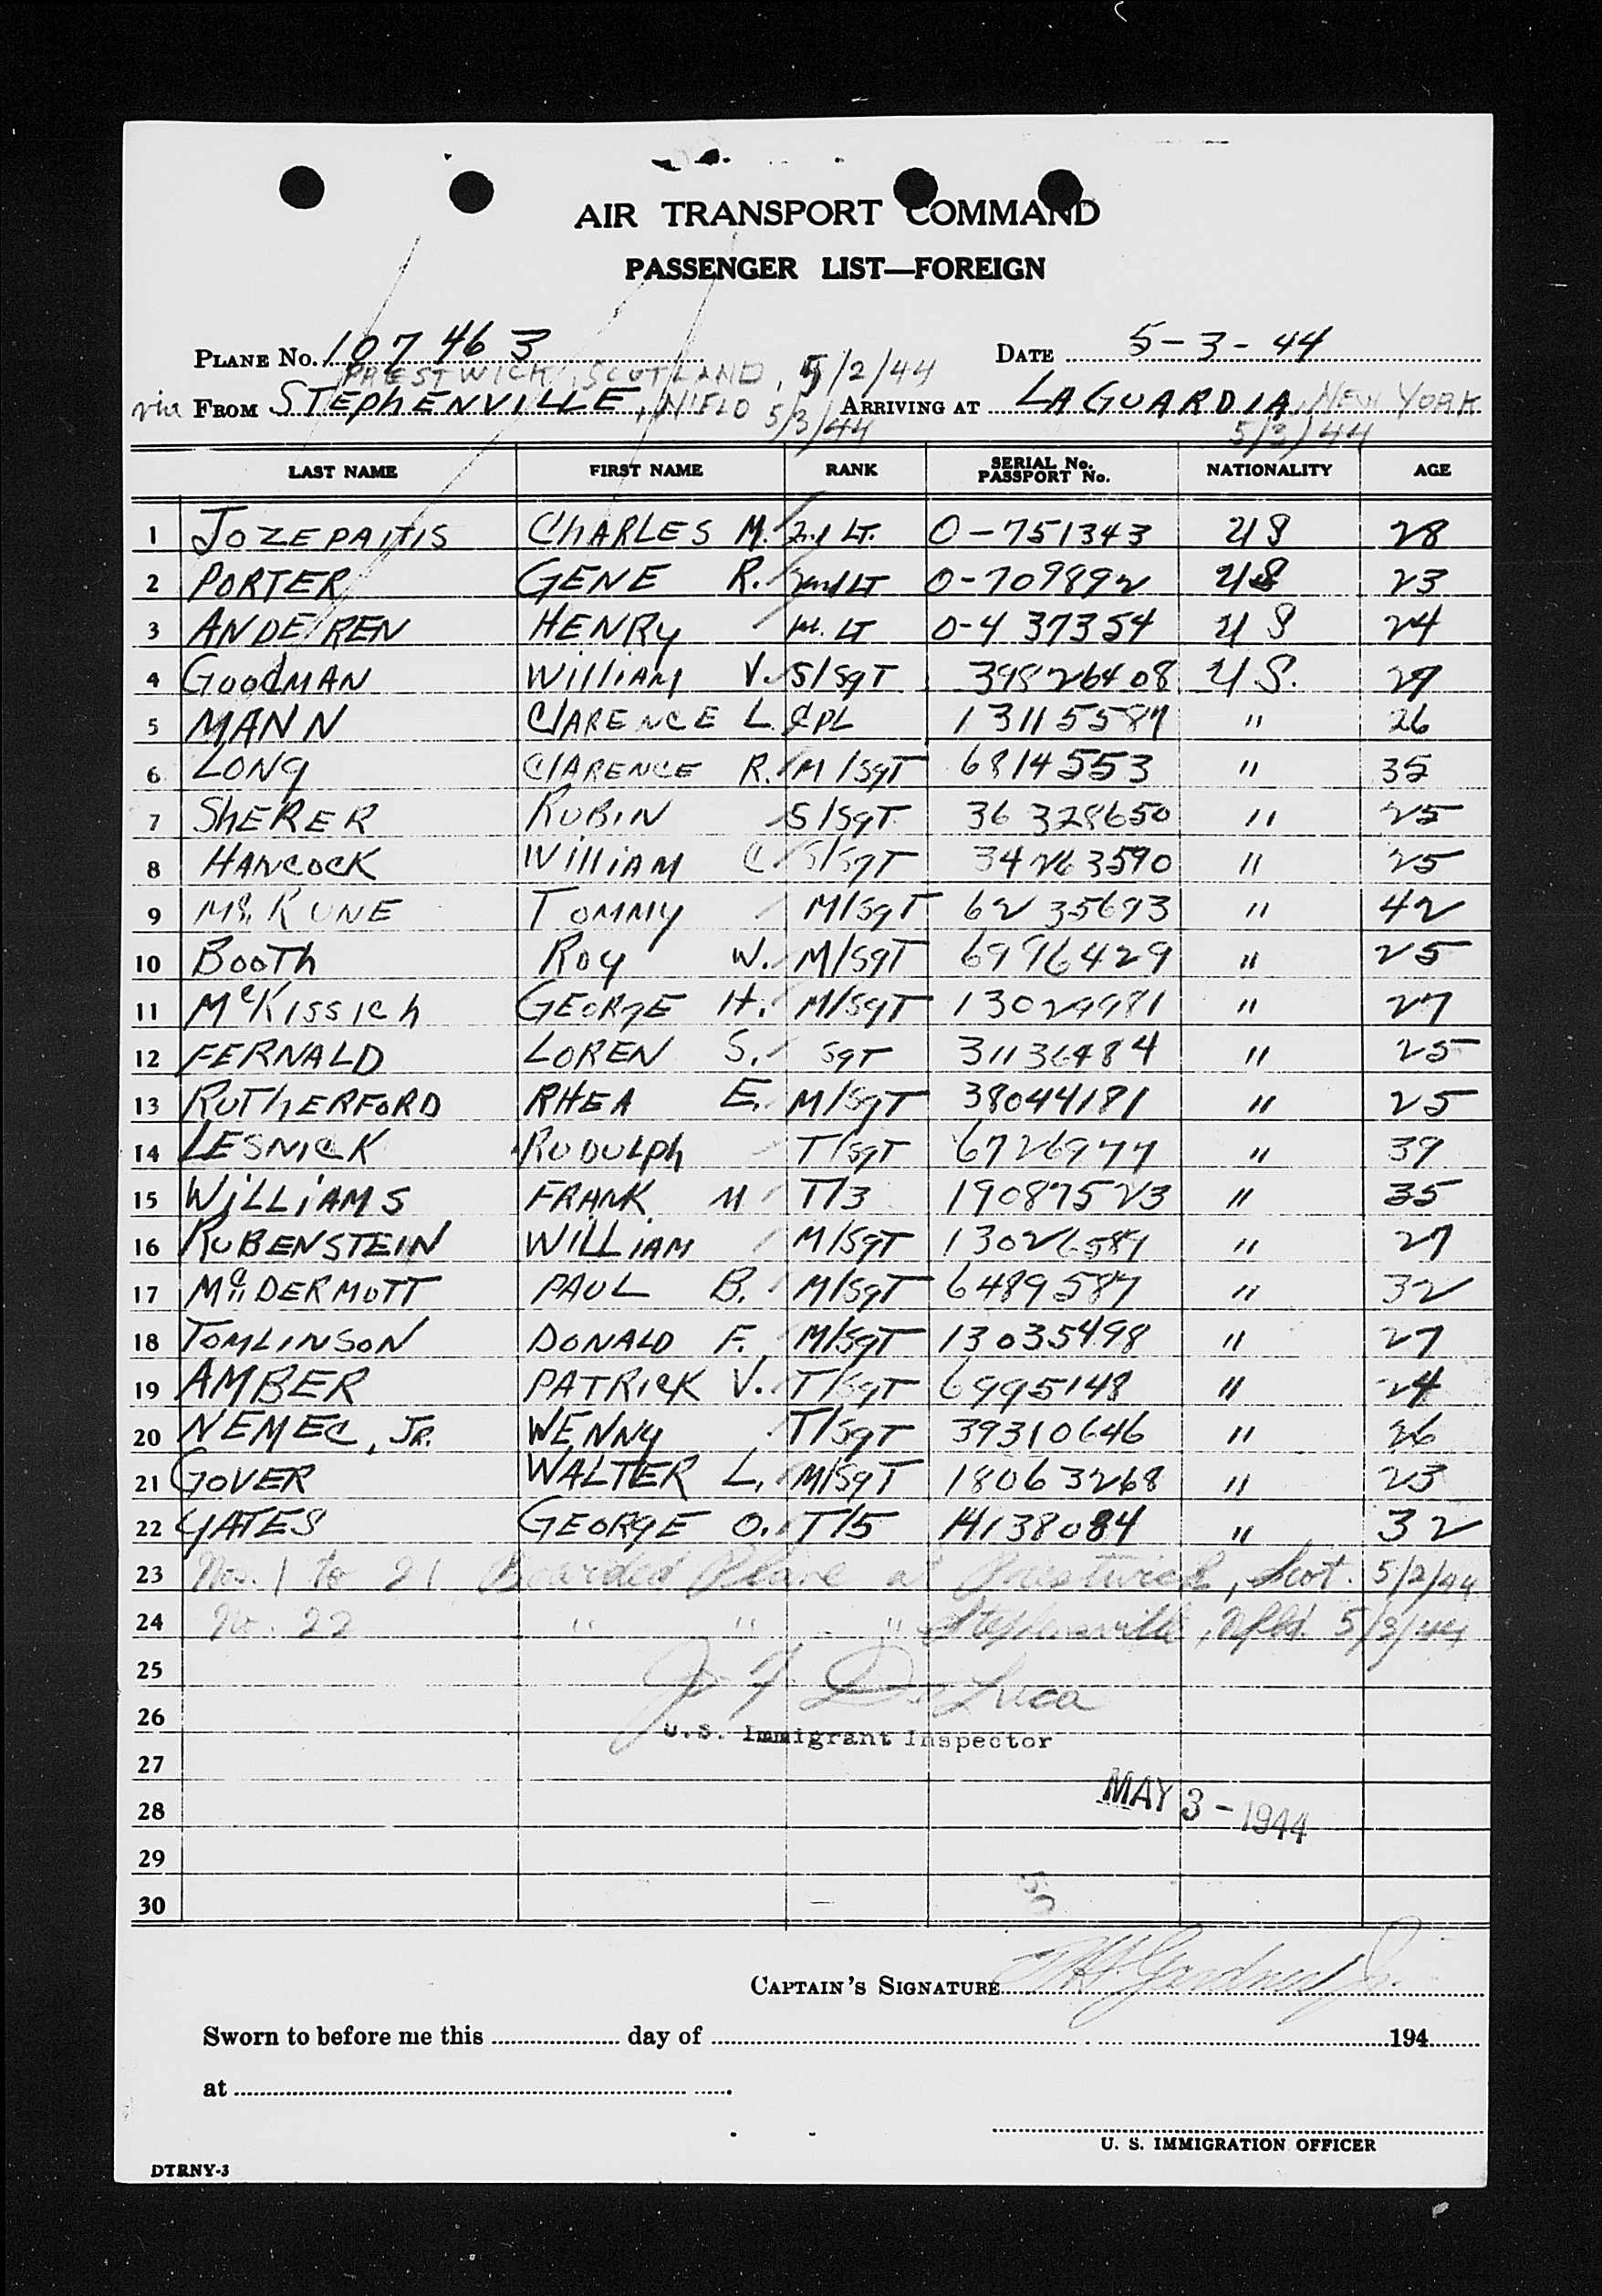 AIR TRANSPORT COMMAND
PASSENGER LIST—FOREIGN
PLANE No. 107463 DATE 5-3-44
PRESTWICK, SCOTLAND, 5/2/44
via FROM STEPHENVILLE, NFLD 5/3/44 ARRIVING AT LAGUARDIA, NEW YORK 5/3/44
LAST NAME FIRST NAME RANK SERIAL No. PASSPORT No. NATIONALITY AGE
1 JOZEPAITIS CHARLES M. 2nd LT. O-751343 US 28
2 PORTER GENE R. 2nd LT O-709892 US 23
3 ANDEREN HENRY 1st. LT O-437354 US 24
4 GOODMAN WILLIAM V. S/SGT 39826408 U.S. 29
5 MANN CLARENCE L. CPL 13115587 " 26
6 LONG CLARENCE R. M/SGT 6814553 " 35
7 SHERER RUBIN S/SGT 36328650 " 25
8 HANCOCK WILLIAM C S/SGT 34263590 " 25
9 Mc.KUNE TOMMY M/SGT 6235693 " 42
10 BOOTH ROY W. M/SGT 6996429 " 25
11 McKISSICH GEORGE H. M/SGT 13029981 " 27
12 FERNALD LOREN S. SGT 31136484 " 25
13 RUTHERFORD RHEA E. M/SGT 38044181 " 25
14 LESNICK RUDULPH T/SGT 6726977 " 39
15 WILLIAMS FRANK M T/3 19087523 " 35
16 RUBENSTEIN WILLIAM M/SGT 13026587 " 27
17 McDERMOTT PAUL B. M/SGT 6489587 " 32
18 TOMLINSON DONALD F. M/SGT 13035498 " 27
19 AMBER PATRICK V. T/SGT 6995148 " 24
20 NEMEC, JR. WENNY T/SGT 39310646 " 26
21 GOVER WALTER L. M/SGT 18063268 " 23
22 YATES GEORGE O. T/5 14138084 " 32
23 Nos. 1 to 21 Boarded Plane at Prestwick, Scot. 5/2/44
24 No. 22 " " " Stephenville, Nfld. 5/3/44
25 J F De Luca
26 U.S. Immigrant Inspector
27
28 MAY 3 - 1944
29
30
CAPTAIN'S SIGNATURE
Sworn to before me this day of 194
at
U. S. IMMIGRATION OFFICER
DTRNY-3